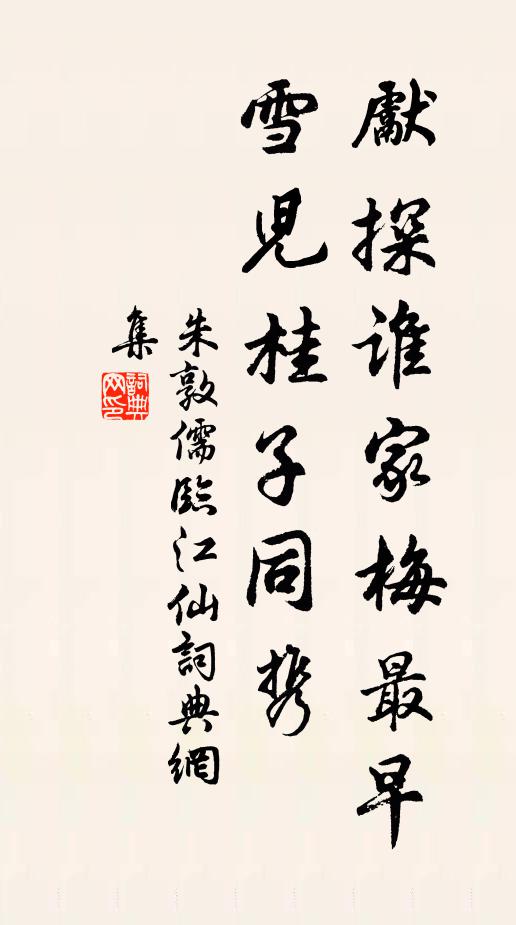 獻探谁家梅最早
雪児桂子同携
朱敦儒臨江仙詞典網
集
詞典
网印